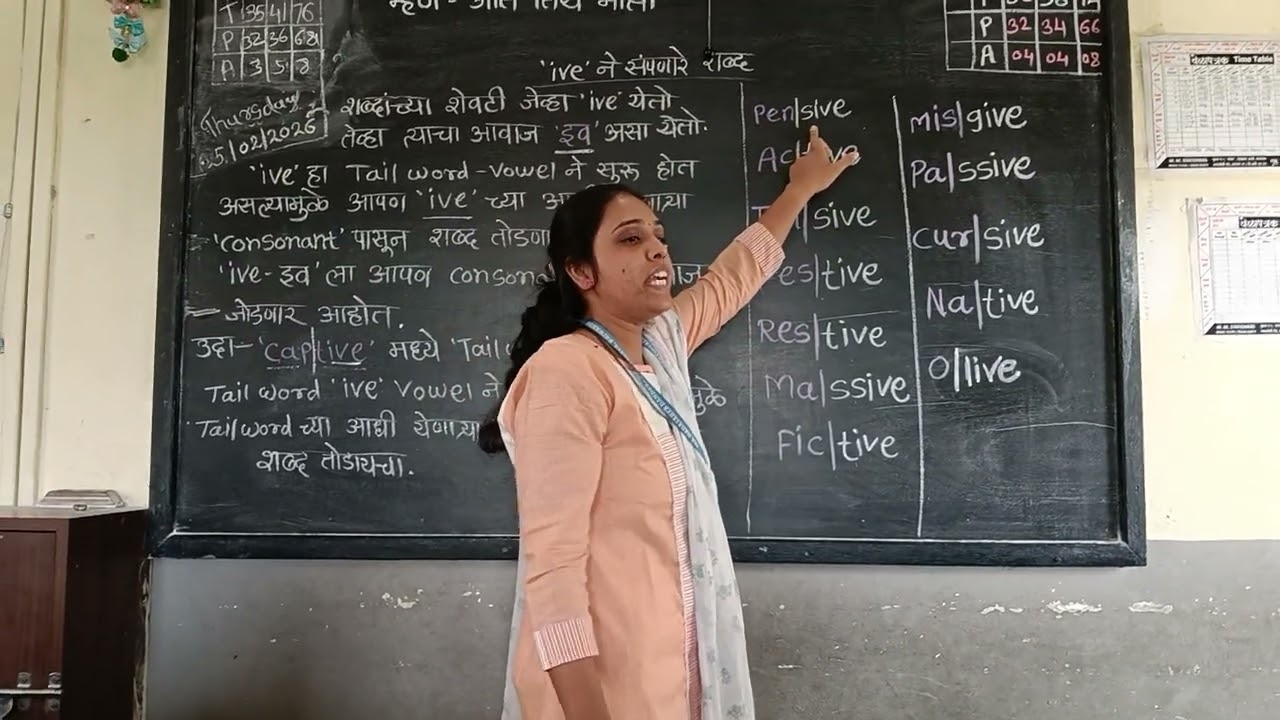 T 35 41 76
P 32 36 68
A 3 5 8
म्हण - अति तिथे माती
P 32 34 66
A 04 04 08
वेळापत्रक Time Table
वेळापत्रक
Thursday
5/02/2026
'ive' ने संपणारे शब्द
शब्दांच्या शेवटी जेव्हा 'ive' येतो
तेव्हा त्याचा आवाज 'इव' असा येतो.
'ive' हा Tail word - vowel ने सुरू होत
असल्यामुळे आपण 'ive' च्या
'consonant' पासून शब्द
'ive - इव' ला आपण
जोडणार आहोत.
उदा - 'cap/tive' मध्ये
Tail word 'ive' vowel ने
Tail word च्या आधी येणाऱ्या
शब्द तोडायचा.
Pen|sive
sive
tive
Res|tive
Ma|ssive
Fic|tive
mis|give
Pa|ssive
cur|sive
Na|tive
O|live